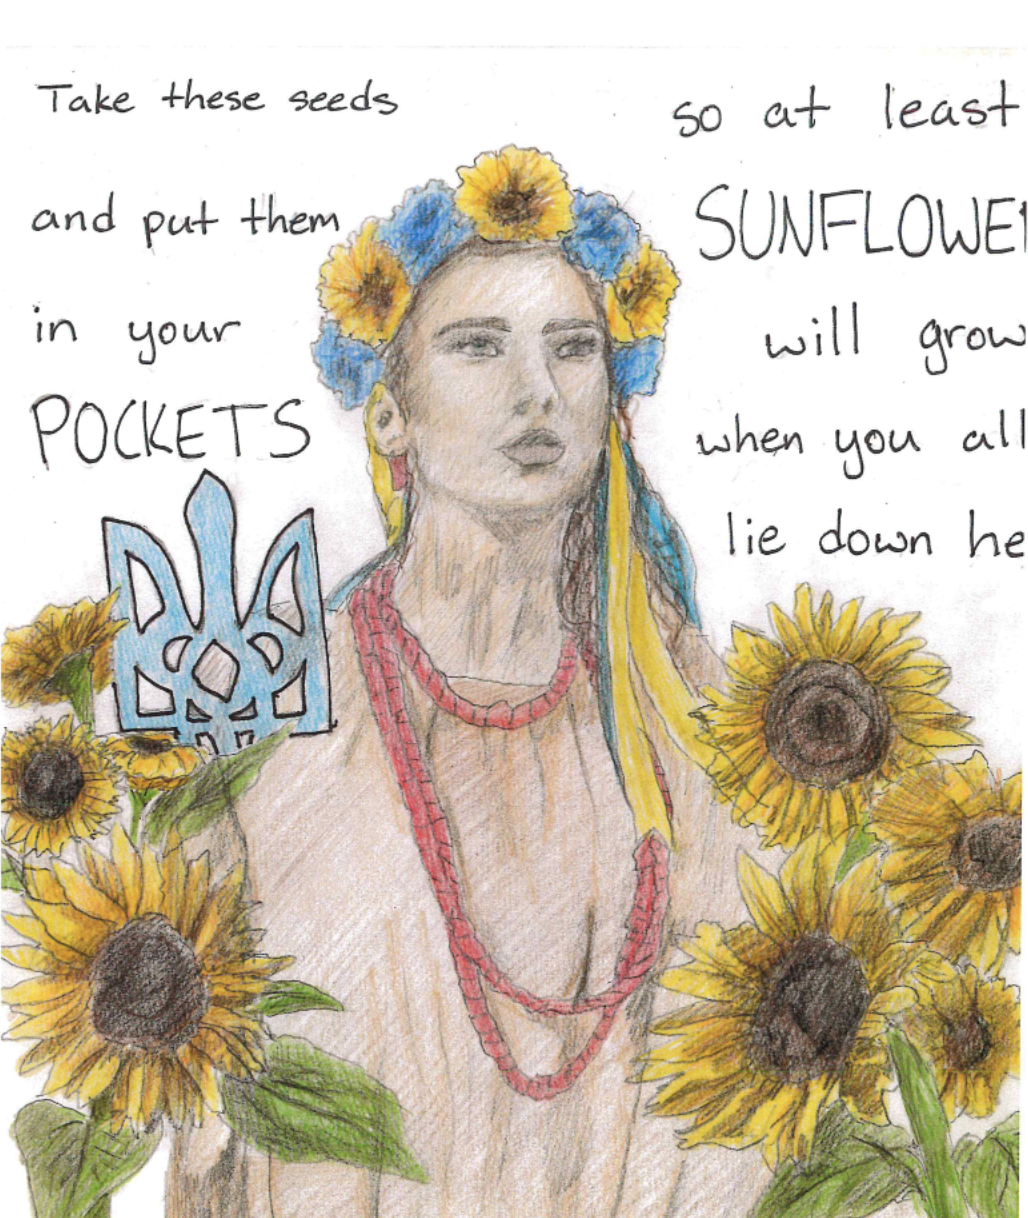 Take these seeds
and put them
in your
POCKETS
so at least
SUNFLOWE
will grow
when you all
lie down he